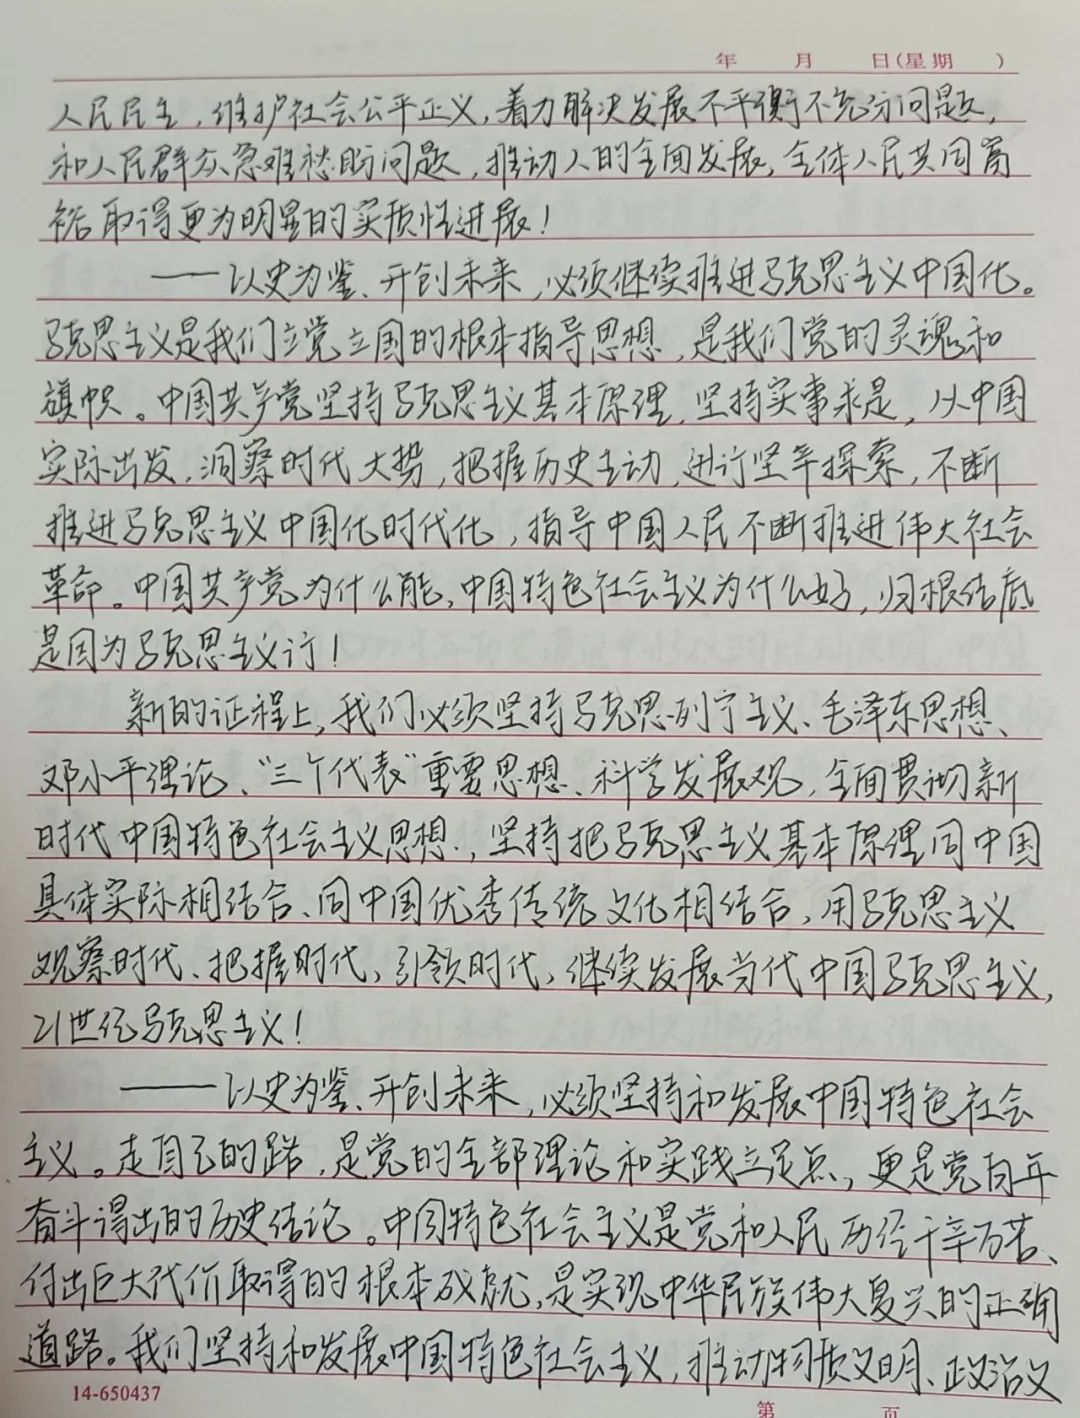 年 月 日(星期 )
人民民主,维护社会公平正义,着力解决发展不平衡不充分问题,
和人民群众急难愁盼问题,推动人的全面发展,全体人民共同富
裕取得更为明显的实质性进展!
——以史为鉴、开创未来,必须继续推进马克思主义中国化。
马克思主义是我们立党立国的根本指导思想,是我们党的灵魂和
旗帜。中国共产党坚持马克思主义基本原理,坚持实事求是,从中国
实际出发,洞察时代大势,把握历史主动,进行坚辛探索,不断
推进马克思主义中国化时代化,指导中国人民不断推进伟大社会
革命。中国共产党为什么能,中国特色社会主义为什么好,归根结底
是因为马克思主义行!
新的征程上,我们必须坚持马克思列宁主义、毛泽东思想、
邓小平理论、“三个代表”重要思想、科学发展观,全面贯彻新
时代中国特色社会主义思想,坚持把马克思主义基本原理同中国
具体实际相结合、同中国优秀传统文化相结合,用马克思主义
观察时代、把握时代、引领时代,继续发展当代中国马克思主义,
21世纪马克思主义!
——以史为鉴、开创未来,必须坚持和发展中国特色社会
主义。走自己的路,是党的全部理论和实践立足点,更是党百年
奋斗得出的历史结论。中国特色社会主义是党和人民历经千辛万苦、
付出巨大代价取得的根本成就,是实现中华民族伟大复兴的正确
道路。我们坚持和发展中国特色社会主义,推动物质文明、政治文
14-650437
第 页